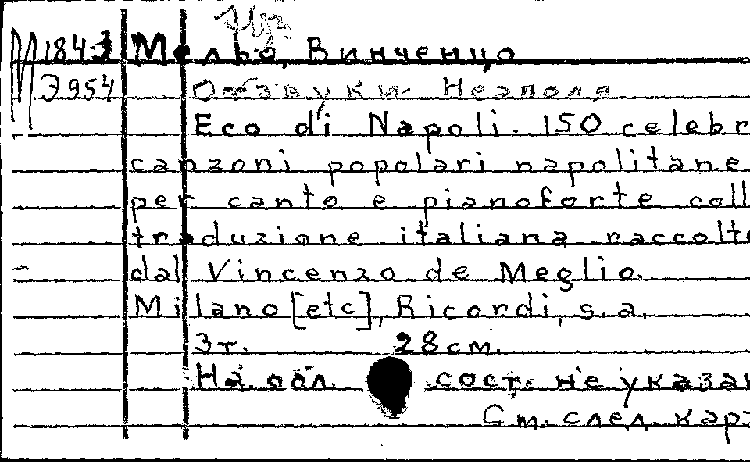 М 1843 Мельо, Винченцо
Э954 Отзвуки Неаполя
Eco di Napoli. 150 celebr
canzoni popolari napolitane
per canto e pianoforte coll
traduzione italiana raccolte
dal Vincenzo de Meglio.
Milano [etc], Ricordi, s.a.
3 т. 28 см.
На обл. сост. не указан
См. след. кар